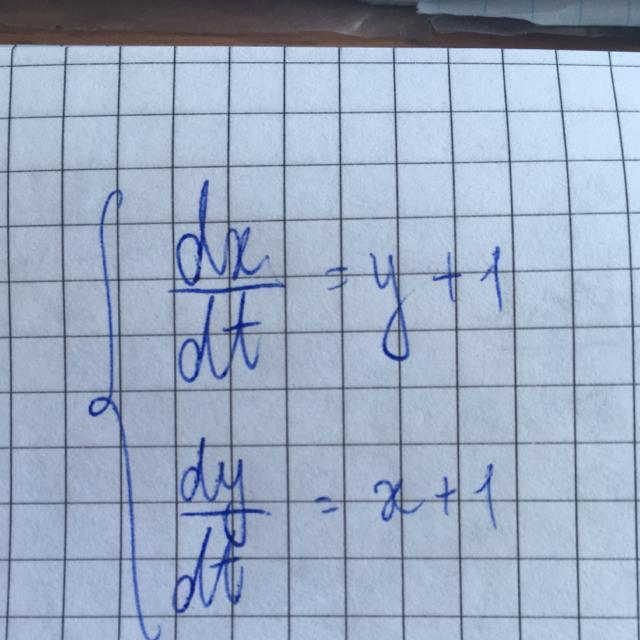 dx/dt = y + 1
dy/dt = x + 1